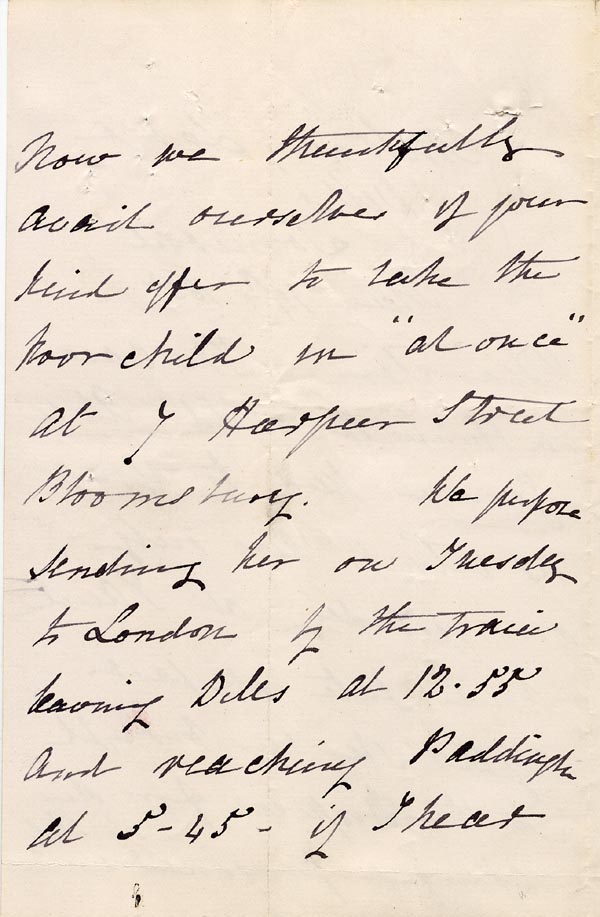 Now we thankfully
avail ourselves of your
kind offer to take the
poor child in "at once"
at 7 Harpur Street
Bloomsbury. We propose
sending her on Tuesday
to London by the train
leaving at 12.55
and reaching Paddington
at 5-45- if I hear